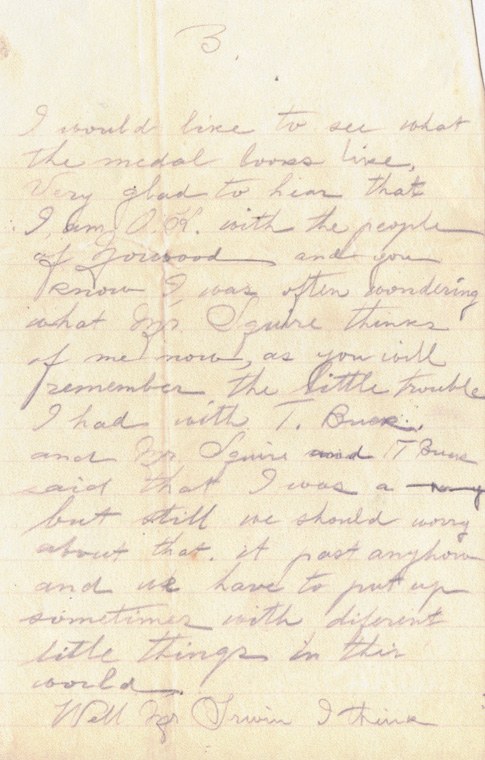 3.
I would like to see what
the medal looks like,
Very glad to hear that
I am O.K. with the people
of and you
know I was often wondering
what Mr. Squire thinks
of me now, as you will
remember the little trouble
I had with T. Buck.
and Mr Squire and T Buck
said that I was a
but still we should worry
about that. it past anyhow
and we have to put up
sometimes with diferent
little things in this
would.
Well Mr Irwin I think